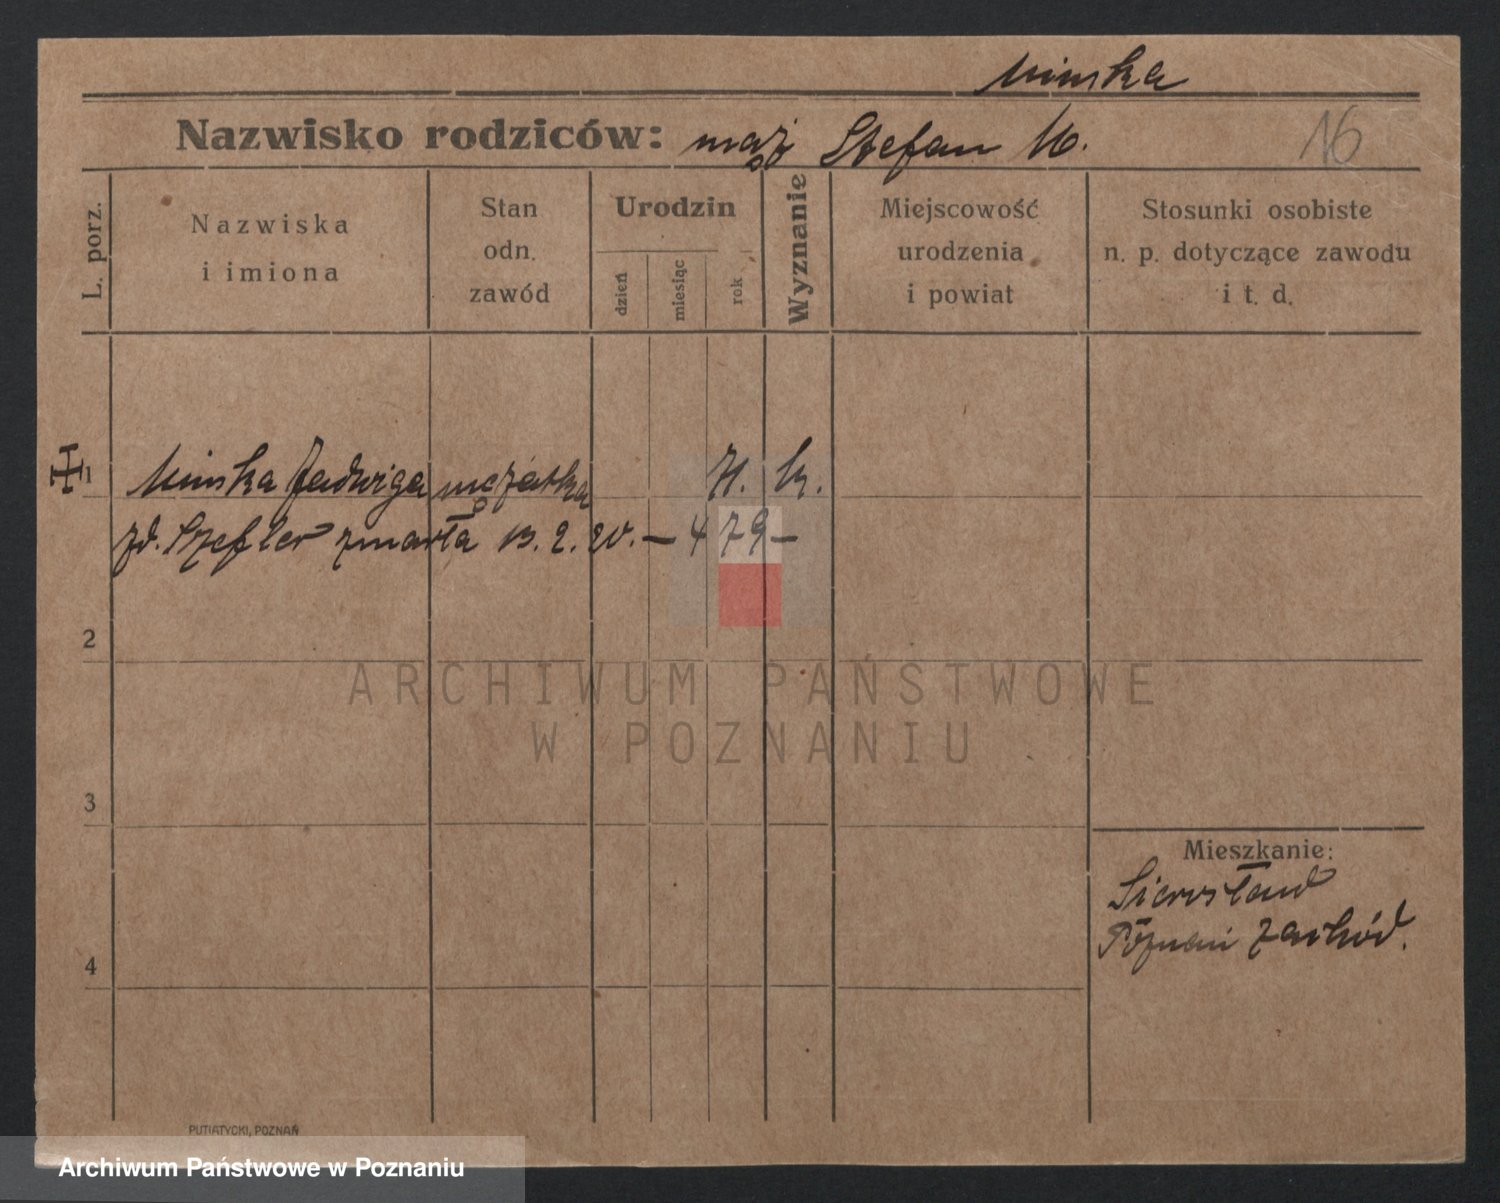 Minska
Nazwisko rodziców: mąż Stefan M.
16
L. porz.
Nazwiska
i imiona
Stan
odn.
zawód
Urodzin
dzień
miesiąc
rok
Wyznanie
Miejscowość
urodzenia
i powiat
Stosunki osobiste
n. p. dotyczące zawodu
i t. d.
1
Minska Jadwiga mężatka 71. k.
zd. Szefler zmarła 13. 2. 20. — 479 —
2
3
4
Mieszkanie:
Sierosław
Poznań zachód.
PUTIATYCKI, POZNAŃ
ARCHIWUM PAŃSTWOWE
W POZNANIU
Archiwum Państwowe w Poznaniu